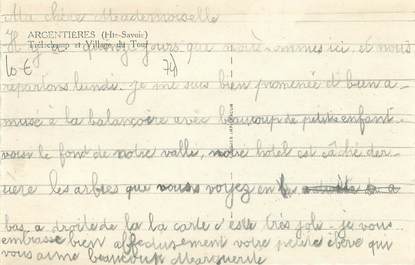 Ma chère Mademoiselle
Il y a jours que nous sommes ici, et nous
ARGENTIÈRES (Hte-Savoie)
Trélechamp et Village du Tour
10 € 74
repartons lundi. je me suis bien promenée et bien a-
musé a la balançoire avec beaucoup de petits enfant.
voici le font de notre valle, notre hotel est câché der-
riere les arbres que vous voyez en a
bas a droite de la la carte c'este très joli - je vous
embrasse bien affectueusement votre petite élève qui
vous aime beaucoup Marguerite